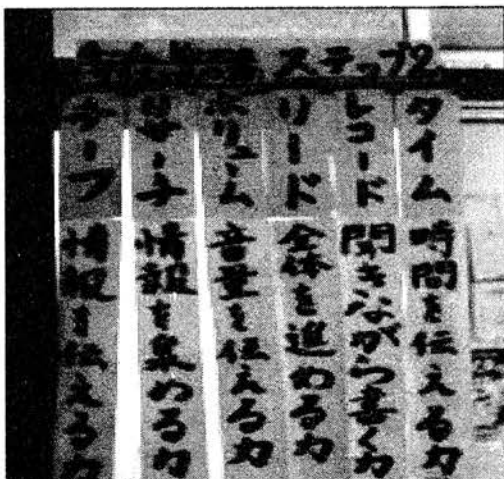 ステップ2
タイム
時間を伝える力
レコード
聞きながら書く力
リード
全体を進める力
ボリューム
音量を伝える力
リサーチ
情報を集める力
情報を伝える力